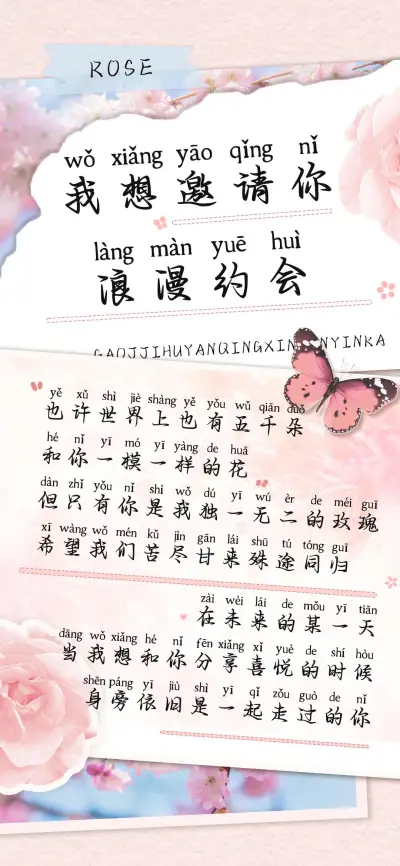 ROSE
wǒ xiǎng yāo qǐng nǐ
我想邀请你
làng màn yuē huì
浪漫约会
yě xǔ shì jiè shàng yě yǒu wǔ qiān duǒ
也许世界上也有五千朵
hé nǐ yī mó yī yàng de huā
和你一模一样的花
dàn zhǐ yǒu nǐ shì wǒ dú yī wú èr de méi guī
但只有你是我独一无二的玫瑰
xī wàng wǒ mén kǔ jìn gān lái shū tú tóng guī
希望我们苦尽甘来殊途同归
zài wèi lái de mǒu yī tiān
在未来的某一天
dāng wǒ xiǎng hé nǐ fēn xiǎng xǐ yuè de shí hòu
当我想和你分享喜悦的时候
shēn páng yī jiù shì yī qǐ zǒu guò de nǐ
身旁依旧是一起走过的你